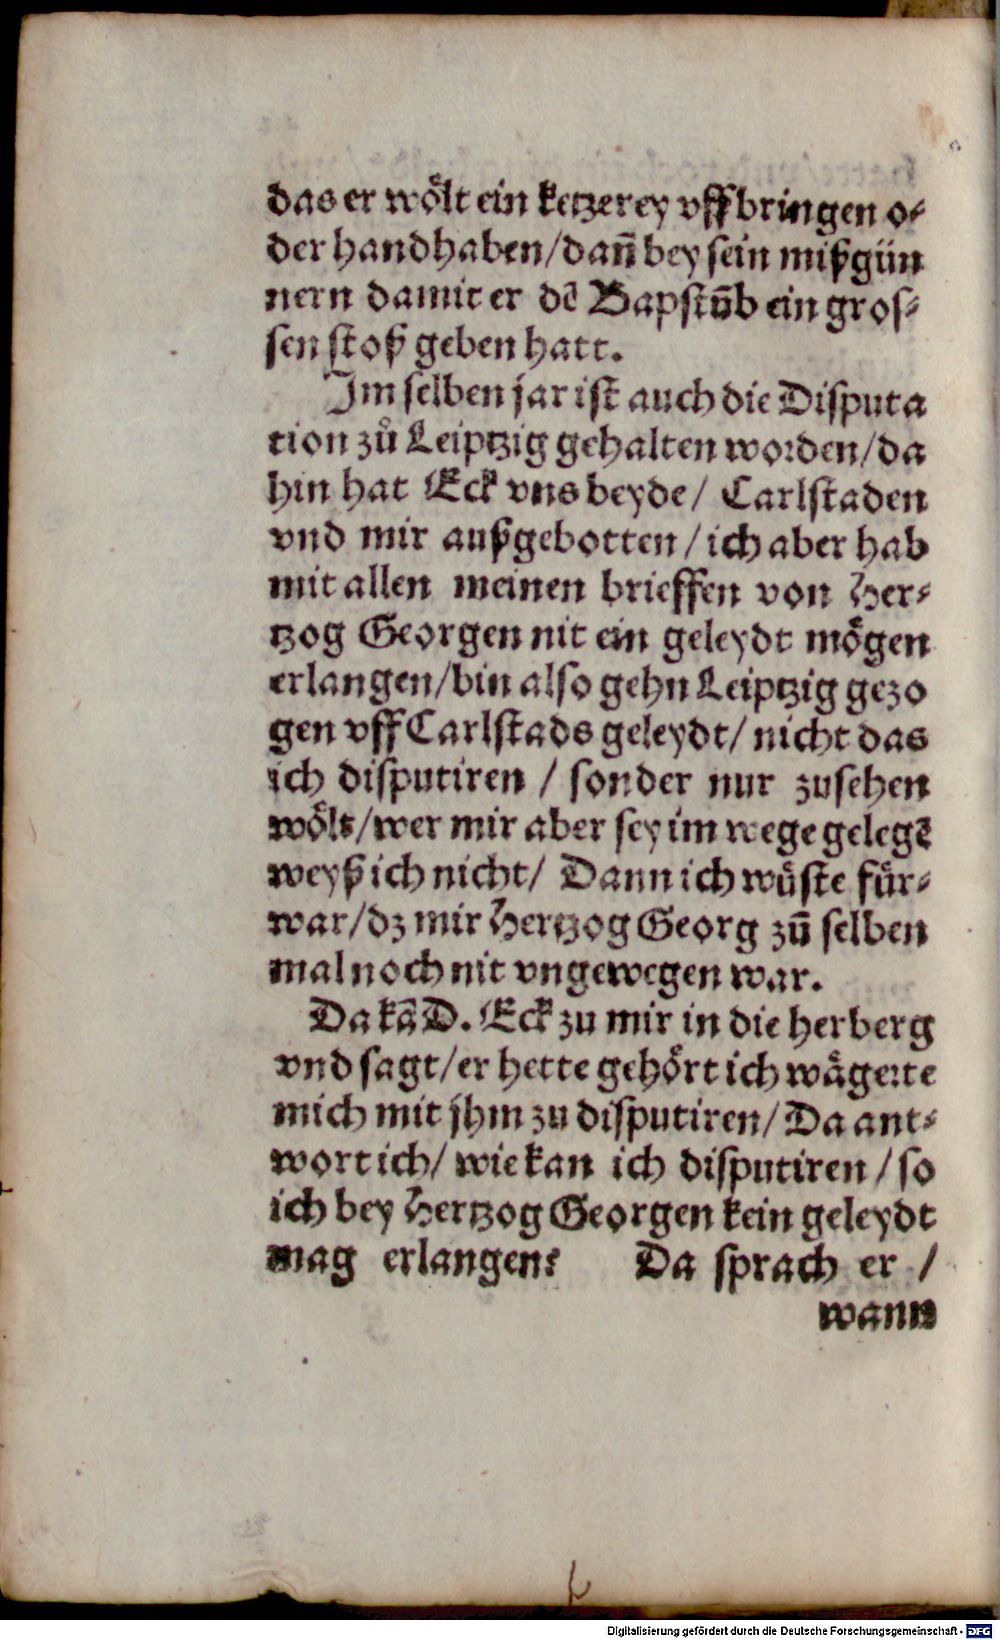 das er wölt ein ketzerey vffbringen o⸗
der handhaben/dañ bey sein mißgün
nern damit er dē Bapstūb ein gros⸗
sen stoß geben hatt.
Im selben jar ist auch die Disputa
tion zů Leiptzig gehalten worden/da
hin hat Eck vns beyde/ Carlstaden
vnd mir außgebotten/ich aber hab
mit allen meinen brieffen von Her⸗
tzog Georgen nit ein geleydt mögen
erlangen/bin also gehn Leiptzig gezo
gen vff Carlstads geleydt/ nicht das
ich disputiren / sonder nur zusehen
wölt/wer mir aber sey im wege gelegē
weyß ich nicht/ Dann ich wüste für⸗
war/dz mir Hertzog Georg zū selben
mal noch nit vngewegen war.
Da kā D. Eck zu mir in die herberg
vnd sagt/er hette gehört ich wägerte
mich mit jhm zu disputiren/ Da ant⸗
wort ich/ wie kan ich disputiren / so
ich bey Hertzog Georgen kein geleydt
mag erlangen? Da sprach er /
wann
Digitalisierung gefördert durch die Deutsche Forschungsgemeinschaft - DFG